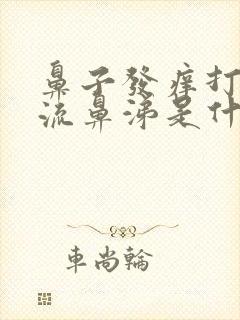 鼻子發癢打
流鼻涕是什
車尚輪